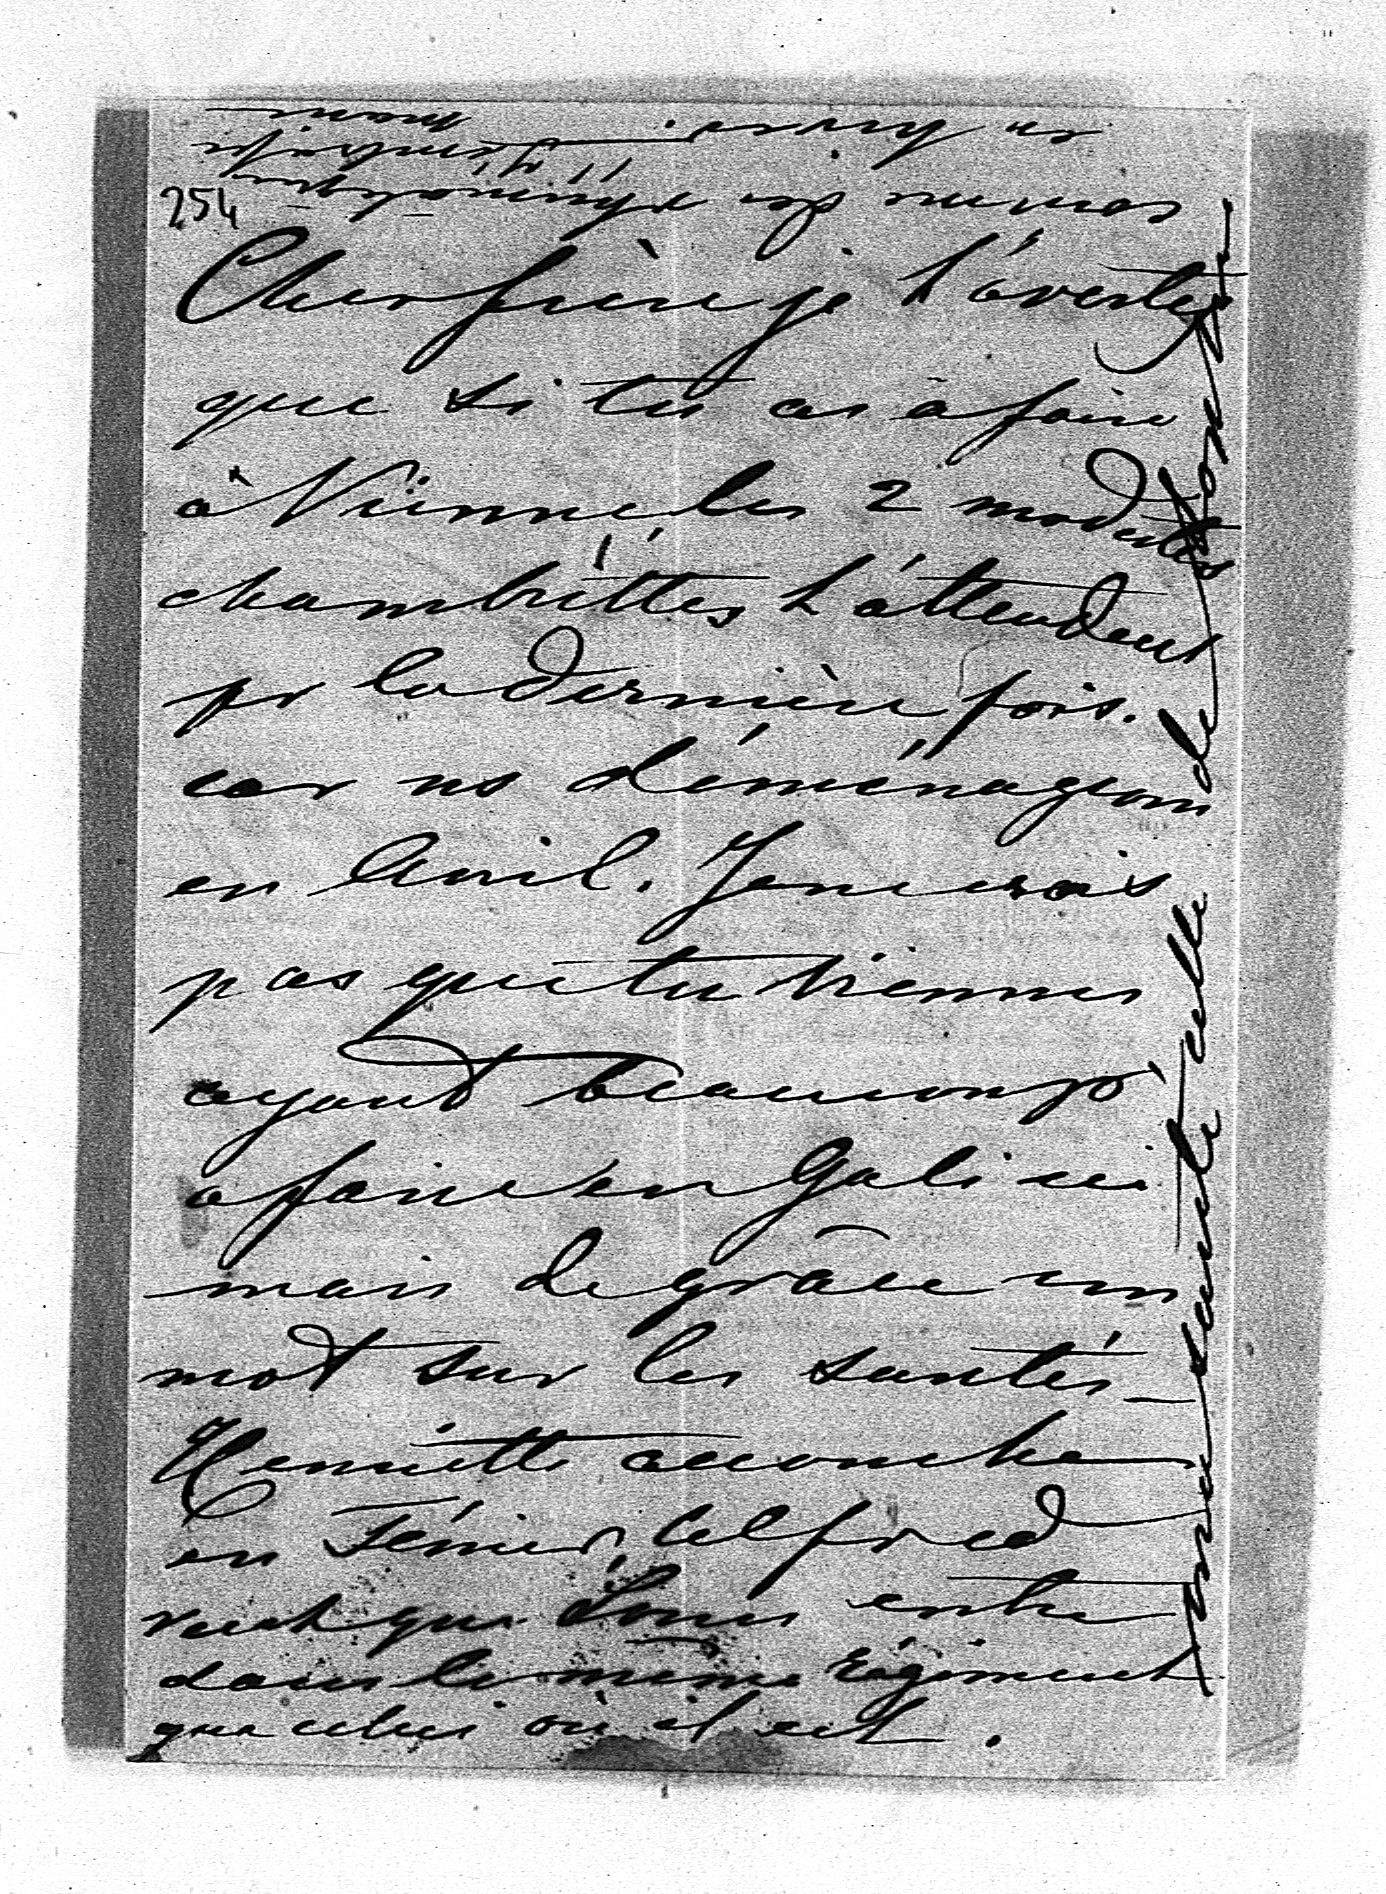 254
Cher frère je t'avertis
que si tu as à faire
à Vienne les 2 modestes
chambrettes t'attendent
pr la dernière fois.
car ns déménageons
en Avril. Je ne crois
pas que tu viennes
ayant beaucoup
à faire en Galicie
mais de grâce un
mot sur les santés
Henriette accouche
en Février Alfred
veut que Louis entre
dans le même régiment
que celui où il est.
ma santé celle
de ton
sommes des
en hiver